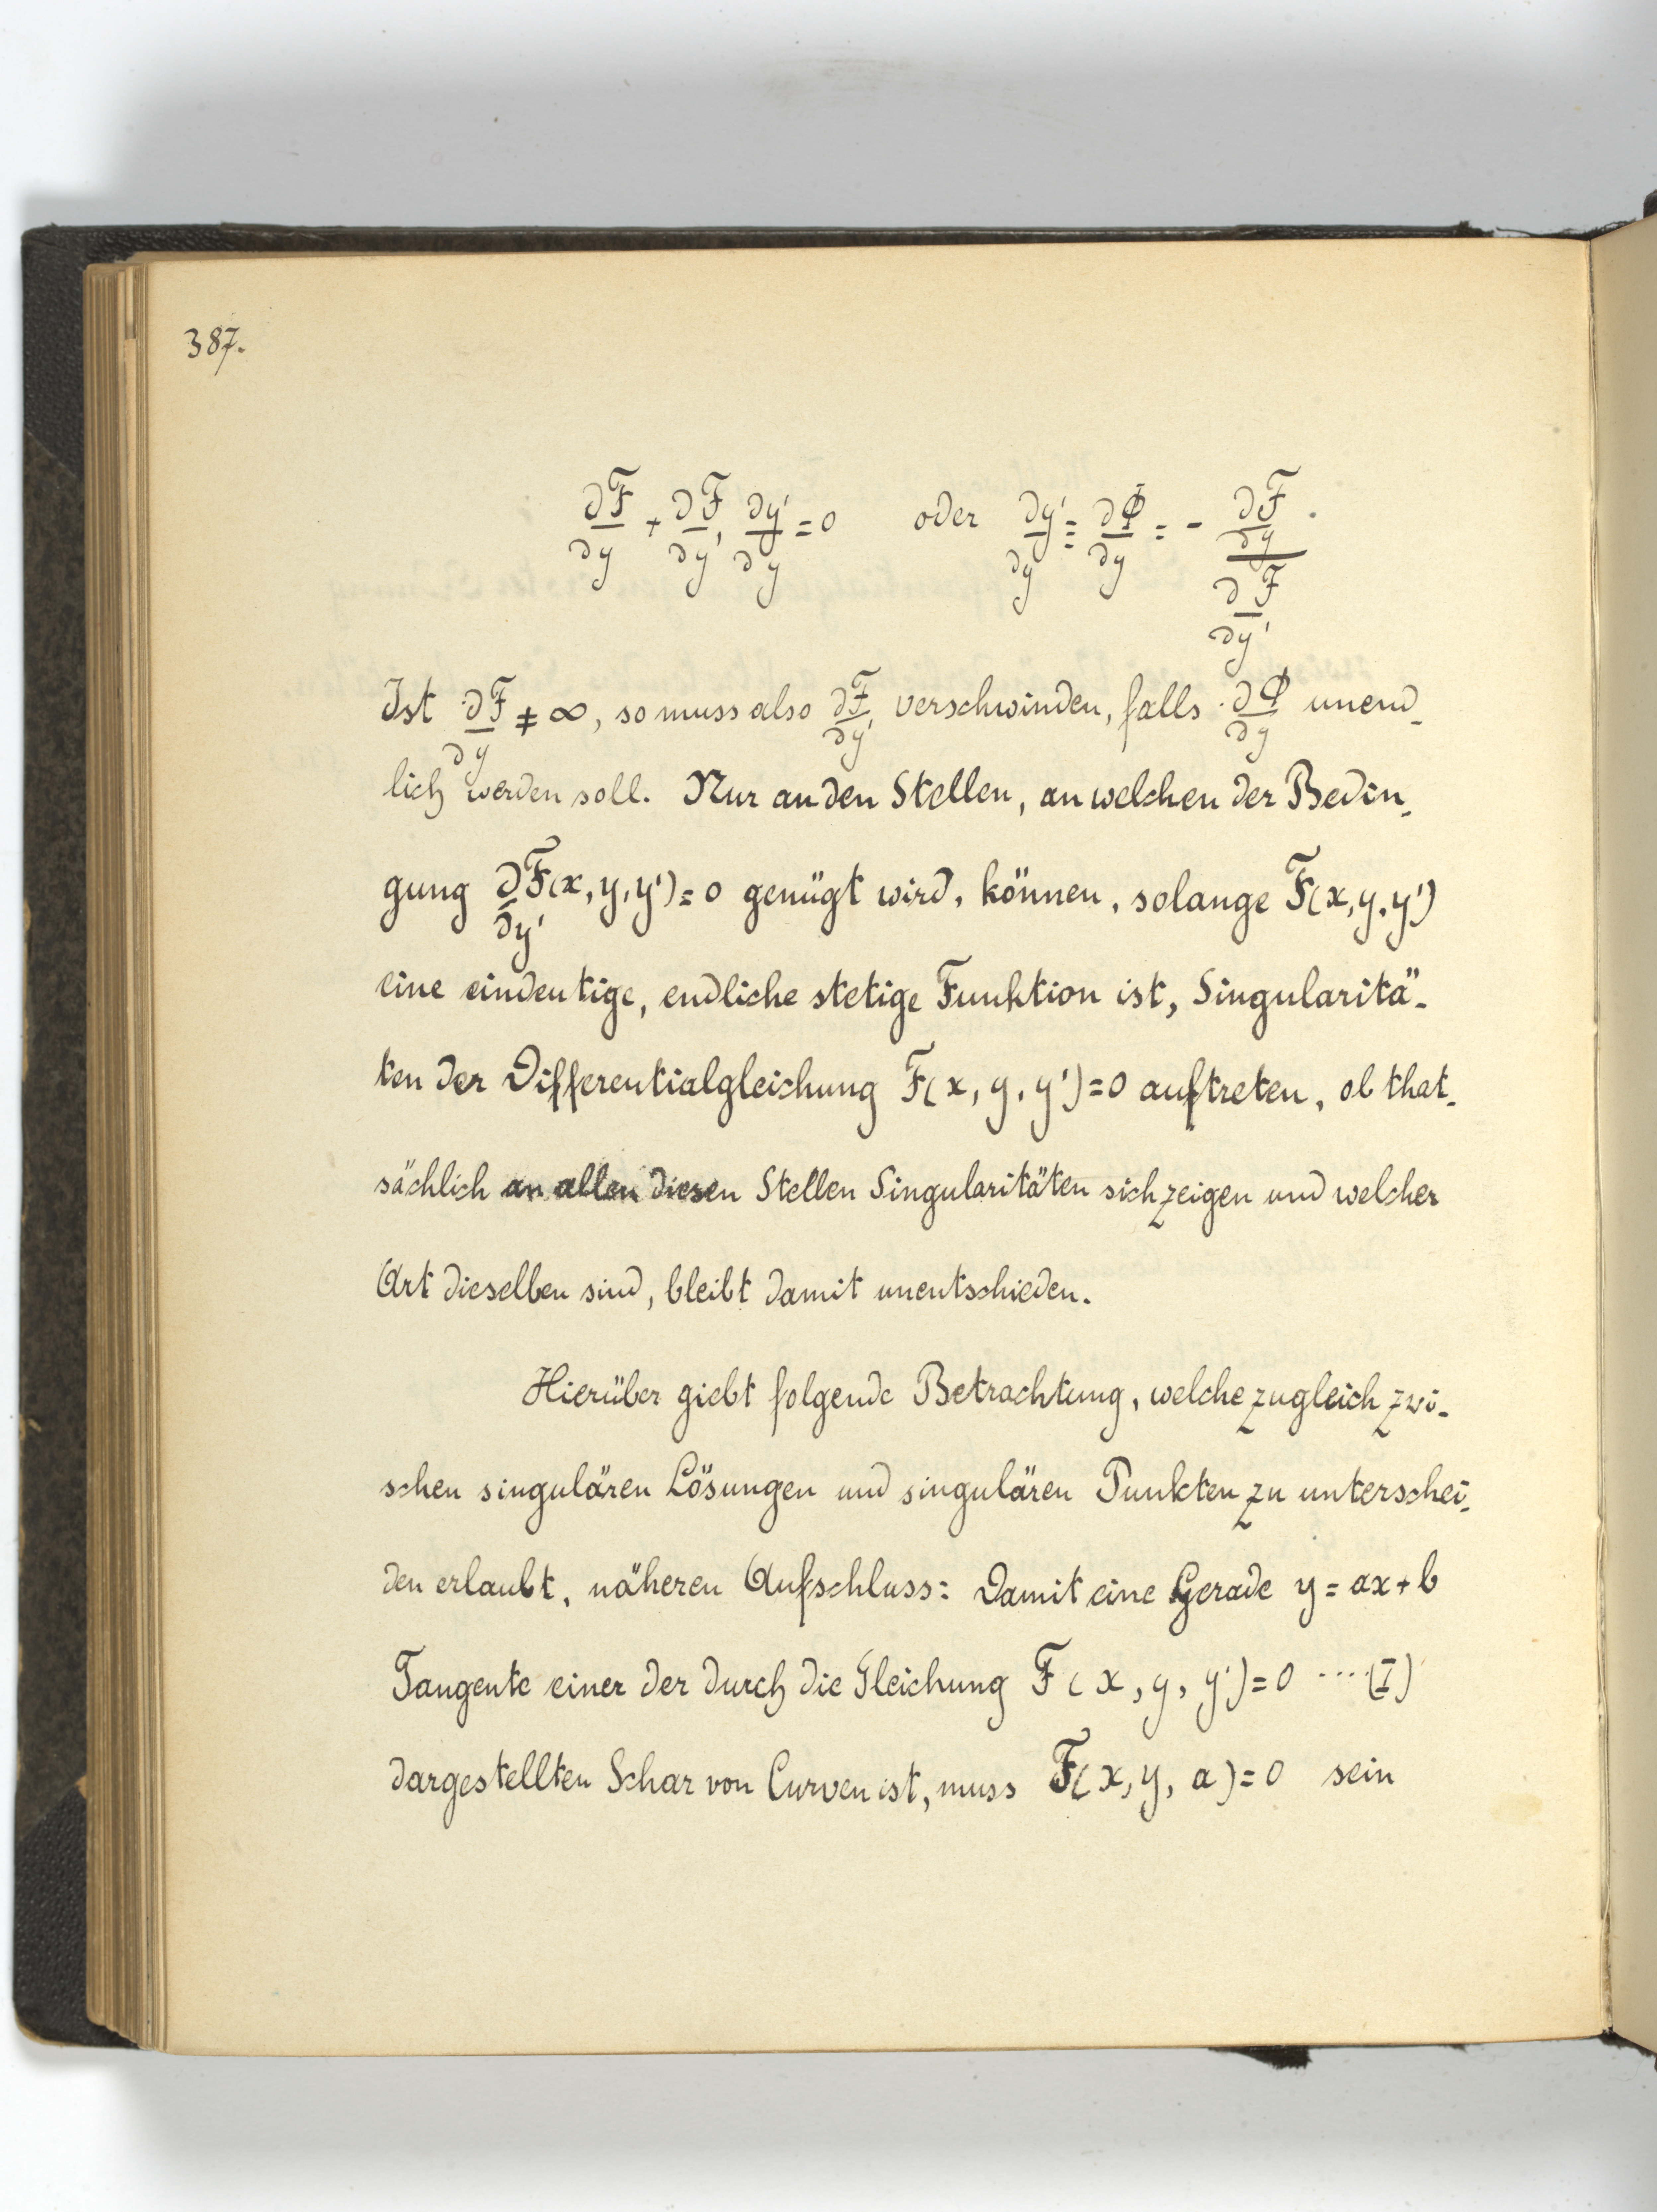 387.
∂F/∂y + ∂F/∂y' ∂y'/∂y = 0 oder ∂y'/∂y = ∂Φ/∂y = - (∂F/∂y)/(∂F/∂y') .
Ist ∂F/∂y ≠ ∞, so muss also ∂F/∂y' verschwinden, falls ∂Φ/∂y unend-
lich werden soll. Nur an den Stellen, an welchen der Bedin-
gung ∂F(x, y, y')/∂y' = 0 genügt wird, können, solange F(x, y, y')
eine eindeutige, endliche stetige Funktion ist, Singularitä-
ten der Differentialgleichung F(x, y, y') = 0 auftreten, ob that-
sächlich an allen diesen Stellen Singularitäten sich zeigen und welcher
Art dieselben sind, bleibt damit unentschieden.
Hierüber giebt folgende Betrachtung, welche zugleich zwi-
schen singulären Lösungen und singulären Punkten zu unterschei-
den erlaubt, näheren Aufschluss: Damit eine Gerade y = ax + b
Tangente einer der durch die Gleichung F(x, y, y') = 0 ....(I)
dargestellten Schar von Curven ist, muss F(x, y, a) = 0 sein